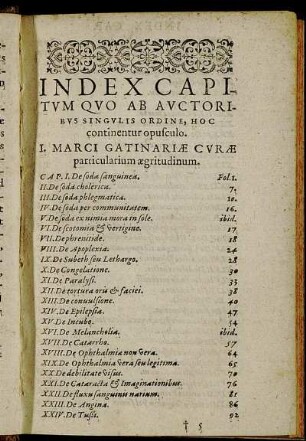 INDEX CAPI-
TVM QVO AB AVCTORI-
BVS SINGVLIS ORDINE, HOC
continentur opusculo.
I. MARCI GATINARIÆ CVRÆ
particularium ægritudinum.
CAP. I. De soda sanguinea. Fol. 1.
II. De soda cholerica. 7.
III. De soda phlegmatica. 10.
IV. De soda per communitatem. 16.
V. De soda ex nimia mora in sole. ibid.
VI. De scotomia & vertigine. 17
VII. De phrenitide. 18
VIII. De Apoplexia. 24
IX. De Subeth seu Lethargo. 28
X. De Congelatione. 30
XI. De Paralysi. 33
XII. De tortura oris & faciei. 38
XIII. De conuulsione. 40
XIV. De Epilepsia. 47
XV. De Incubo. 54
XVI. De Melancholia. ibid.
XVII. De Catarrho. 57
XVIII. De Ophthalmia non vera. 64
XIX. De Ophthalmia vera seu legitima. 65
XX. De debilitate visus. 70
XXI. De Cataracta & Imaginationibus. 76
XXII. De fluxu sanguinis narium. 81
XXIII. De Angina. 86
XXIV. De Tussi. 92
† 5